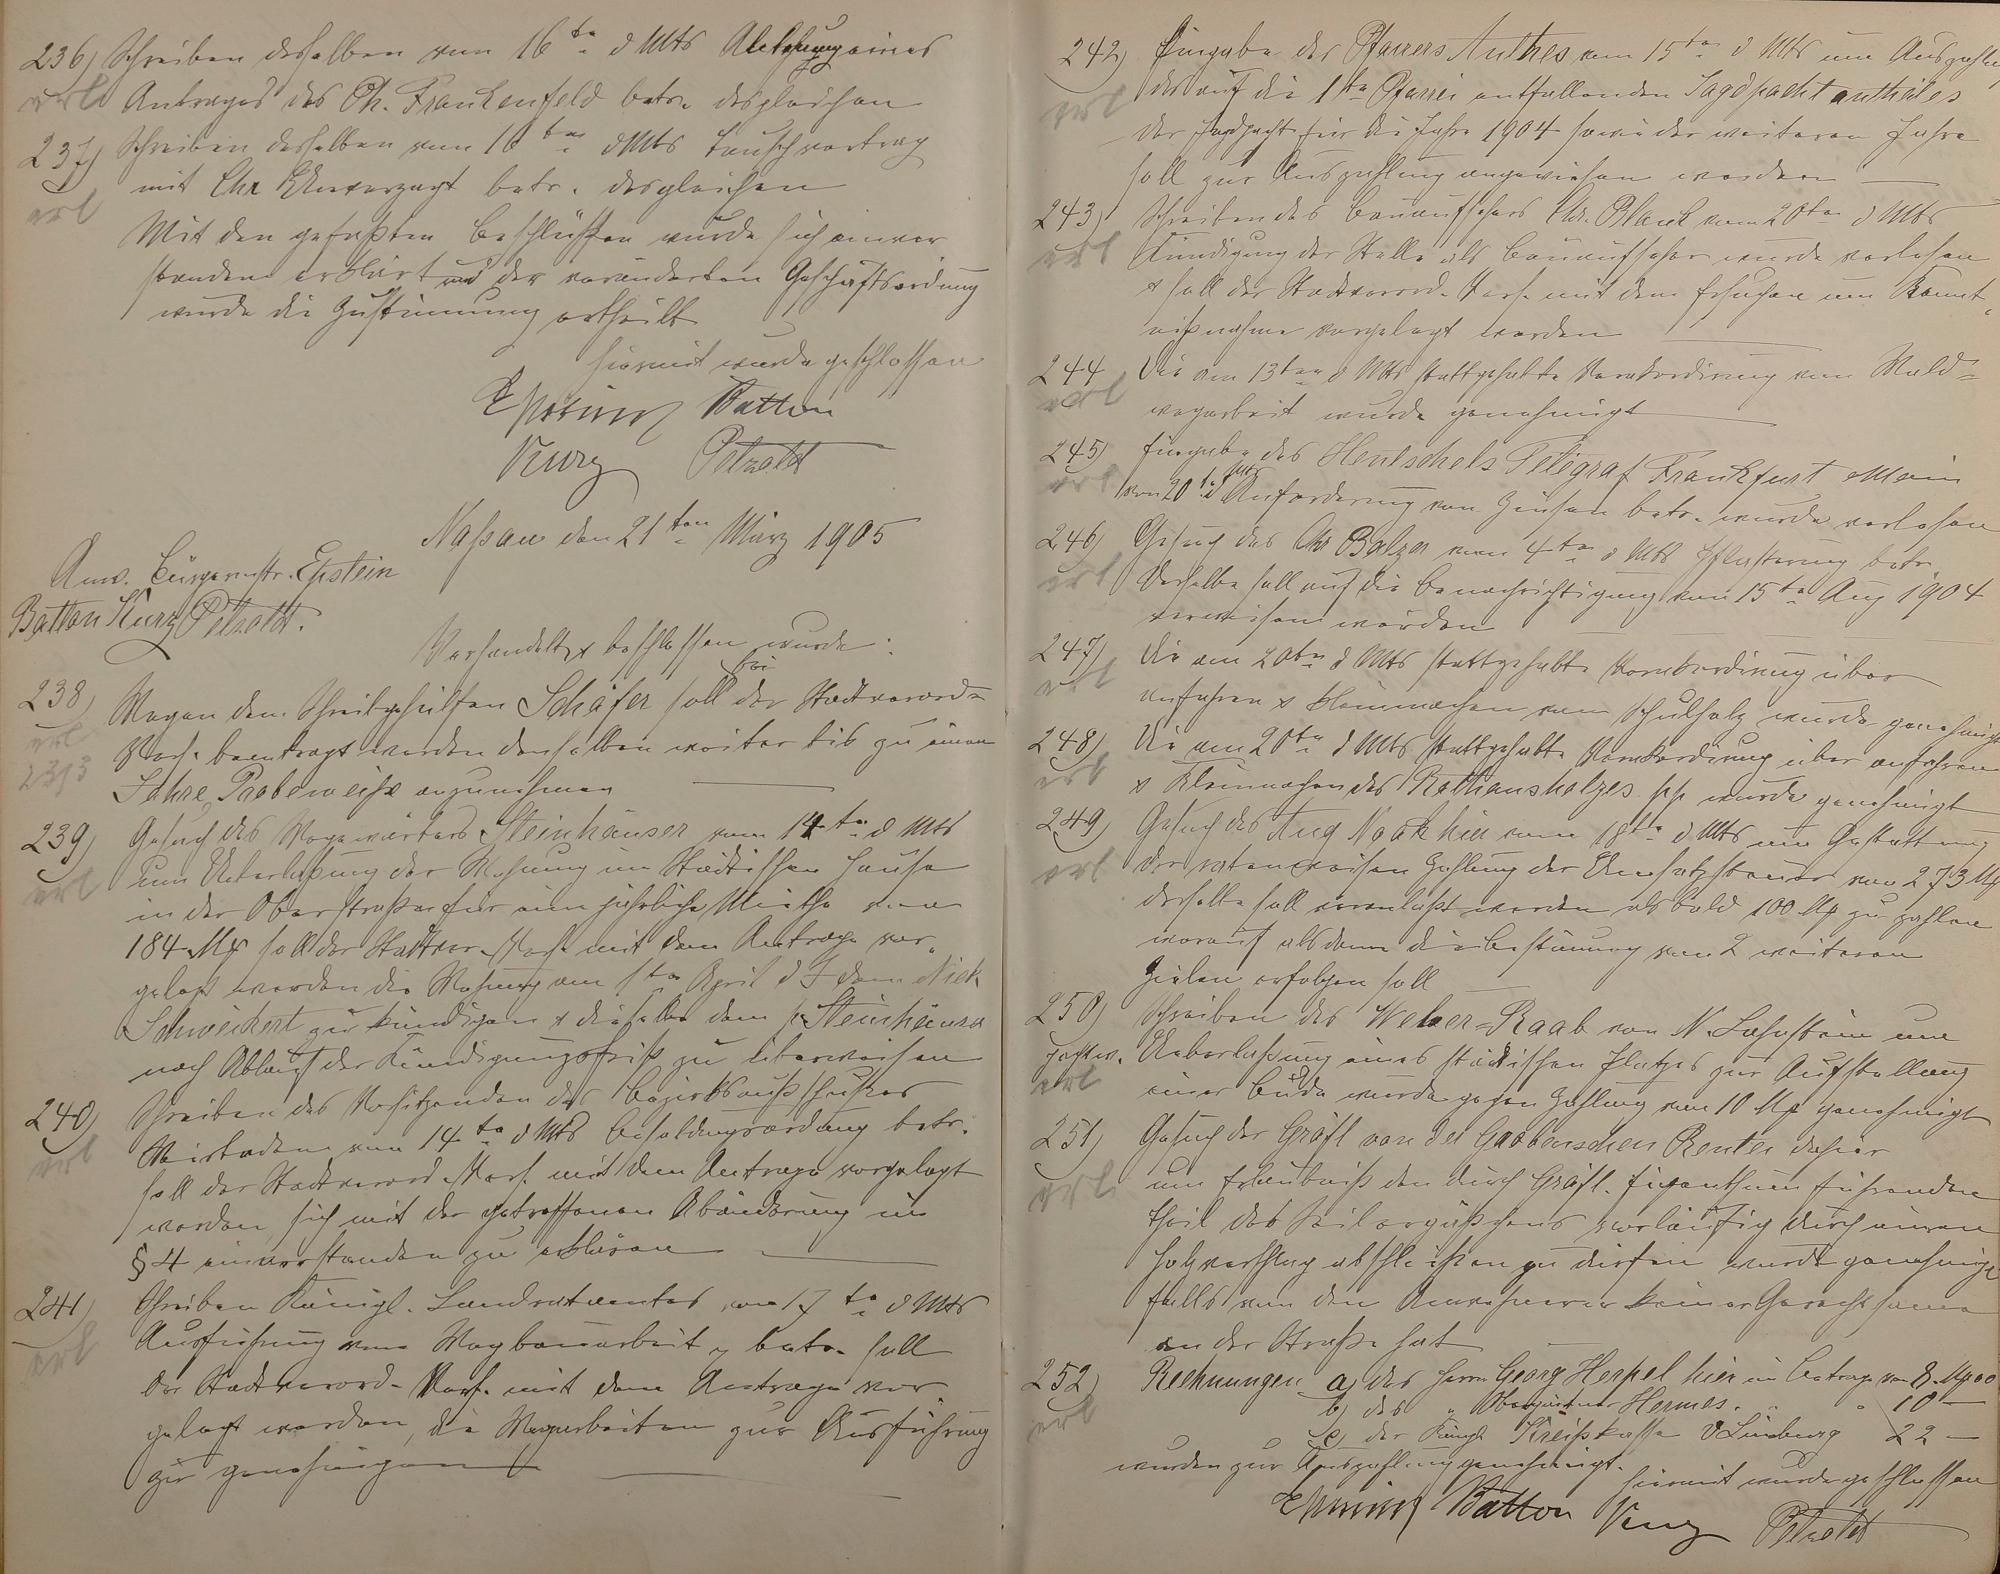 236) Schreiben desselben vom 16ten d Mts Ablehnung eines
erl Antrages des Ch. Frankenfeld betr. desgleichen
237) Schreiben desselben vom 16ten d Mts Tauschvertrag
erl mit Chr Unverzagt betr. desgleichen
Mit den gefaßten Beschlüßen wurde sich einver
standen erklärt und der veränderten Geschäftsordnung
wurde die Zustimmung ertheilt
hiermit wurde geschlossen
Epstein Batton
Kurz Petzold
Naßau den 21ten März 1905
Anw. Bürgermstr. Epstein
Batton Kurz Petzold.
Verhandelt & beschlossen wurde:
238) Wegen dem Schreibgehülfen Schäfer soll bei der Stadtverord=
erl Vers. beantragt werden denselben weiter bis zu einem
23/3 Jahre Probeweise anzunehmen
239) Gesuch des Steinhäuser vom 14ten d Mts
erl um Ueberlaßung der Wohnung im Städtischen Hause
in der Oberstraße für eine jährliche Miethe von
184 Mk soll der Stadtver. Vers. mit dem Antrage vor
gelegt werden die Wohnung am 1ten April d J dem
Schweikert zu kündigen & dieselbe dem p Steinhäuser
nach Ablauf der Kündigungsfrist zu überweisen
240) Schreiben des Vorsitzenden des Bezirksausschußes
erl Wiesbaden vom 14ten d Mts Besoldungsordnung betr.
soll der Stadtverord. Vers. mit dem Antrage vorgelegt
werden, sich mit der getroffenen Abänderung im
§ 4 einverstanden zu erklären
241) Schreiben Königl. Landratamtes vom 17ten d Mts
erl Ausführung von Wegbauarbeiten betr. soll
der Stadtverord. Vers. mit dem Antrage vor
gelegt werden, die Wegarbeiten zur Ausführung
zu genehmigen
242) Eingabe des Pfarrers Anthes vom 15ten d Mts um Auszahlung
erl des auf die 1te Pfarrei entfallenden Jagdpachtantheiles
der Jagdpacht für die Jahre 1904 sowie der weiteren Jahre
soll zur Auszahlung angewiesen werden
243) Schreiben des Bauaufsehers Chr. Blank vom 20ten d Mts
erl Kündigung der Stelle als Bauaufseher wurde verlesen
& soll der Stadtverord. Vers. mit dem Ersuchen um Kennt
nißnahme vorgelegt werden
244 Die am 13ten d Mts stattgehabte Verakkordirung von Wald=
erl wegarbeit wurde genehmigt
245) Eingabe des Hentschels Telegraf Frankfurt a Main
erl vom 20ten d Mts Anforderung von Zinsen betr. wurde verlesen
246) Gesuch des Chr Balzer vom 4ten d Mts Pflasterung betr.
erl Derselbe soll auf die Benachrichtigung vom 15ten Aug 1904
verwiesen werden
247) Die am 20ten d Mts stattgehabte Verakkordirung über
erl anfahren & kleinmachen von Schulholz wurde genehmigt
248) Die am 20ten d Mts stattgehabte Verakkordirung über anfahren
erl & Kleinmachen des Rathausholzes pp wurde genehmigt
249) Gesuch des Aug Noak hier vom 18ten d Mts um Gestattung
erl der ratenweisen Zahlung der Umsatzsteuer von 273 Mk
derselbe soll veranlaßt werden als bald 100 Mk zu zahlen
worauf alsdann die Bestimmung von 2 weiteren
Zielen erfolgen soll
250) Schreiben des Weber=Raab von N. Lahnstein um
erl Ueberlaßung eines städtischen Platzes zur Aufstellung
einer Bude wurde gegen Zahlung von 10 Mk genehmigt
251) Gesuch der Gräfl von der Groebenschen Rentei dahier
erl um Erlaubniß den durch Gräfl. Eigenthum führenden
Theil des vorläufig durch einen
Holzverschlag abschließen zu dürfen wurde genehmigt
falls von den Anwohnern keiner Gerechtsame
an der Straße hat
252) Rechnungen a) des Herrn Georg Herpel hier im Betrage von 8. Mk 00
erl b) des " Obergärtner Hermes. " " 10 —
c) der Königl Kreißkasse Limburg 22 —
wurden zur Auszahlung genehmigt.
hiermit wurde geschlossen
Epstein Batton Kurz Petzold